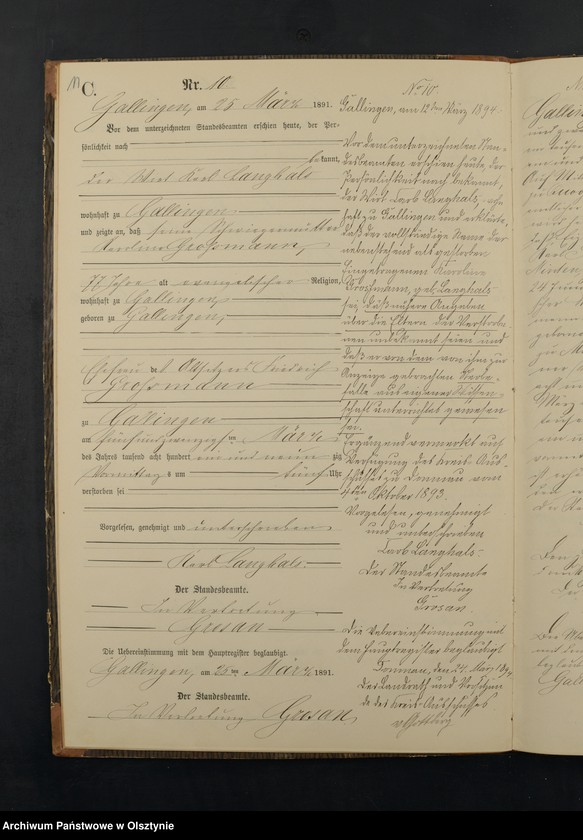 C.
Nr. 10.
Gallingen, am 25 März 1891.
Vor dem unterzeichneten Standesbeamten erschien heute, der Per-
sönlichkeit nach
bekannt,
der Wirt Karl Langhals
wohnhaft zu Gallingen
und zeigte an, daß seine Schwiegermutter
Karoline Grosmann,
77 Jahre alt evangelischer Religion,
wohnhaft zu Gallingen,
geboren zu Gallingen,
Ehefrau des Altsitzers Friedrich
Grosmann
zu Gallingen
am fünfundzwanzigsten März
des Jahres tausend acht hundert ein und neunzig
Vormittags um fünf Uhr
verstorben sei
Vorgelesen, genehmigt und unterschrieben
Karl Langhals.
Der Standesbeamte.
In Vertretung
Grosan
Die Uebereinstimmung mit dem Hauptregister beglaubigt.
Gallingen, am 25ten März 1891.
Der Standesbeamte.
In Vertretung Grosan
No 10.
Gallingen, am 12ten März 1894.
Vor dem unterzeichneten Stan-
desbeamten erschien heute, der
Persönlichkeit nach bekannt,
der Wirt Karl Langhals, wohn-
haft zu Gallingen und erklärte,
daß der vollständige Name der
nebenstehend als gestorben
Eingetragenen Karoline
Grosmann, geb. Langhals
sei, daß nähere Angaben
über die Eltern der Verstorbe-
nen unbekannt seien und
daß er von dem von ihm zur
Anzeige gebrachten Sterbe-
falle aus eigener Wissen-
schaft unterrichtet gewesen
sei.
Ergänzend vermerkt auf
Verfügung des Kreis-Aus-
schusses zu Domnau vom
Oktober 1893.
Vorgelesen, genehmigt
und unterschrieben
Karl Langhals.
Der Standesbeamte
In Vertretung
Grosan.
Die Uebereinstimmung mit
dem Hauptregister beglaubigt
Domnau, den 24. März 1894.
Der Landrath und Vorsitzen-
de des Kreis-Ausschusses
Archiwum Państwowe w Olsztynie